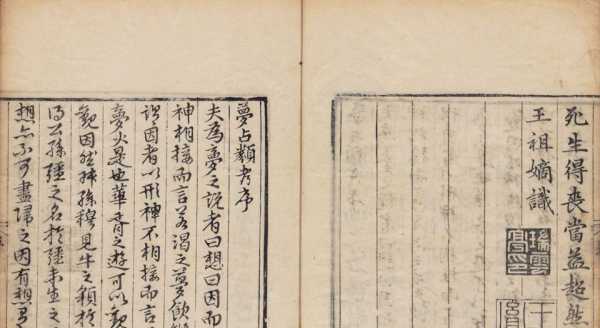 死生得喪當益超然
王祖嫡識
夢占類考序
夫爲夢之說者曰想曰因而
神相接而言若渴之夢飲
謂因者以形神不相接而言
夢火是也華胥之遊可以
觀因然叔孫穆見牛之類於
公孫彊之名於彊未生之
想亦不可盡歸之因有想